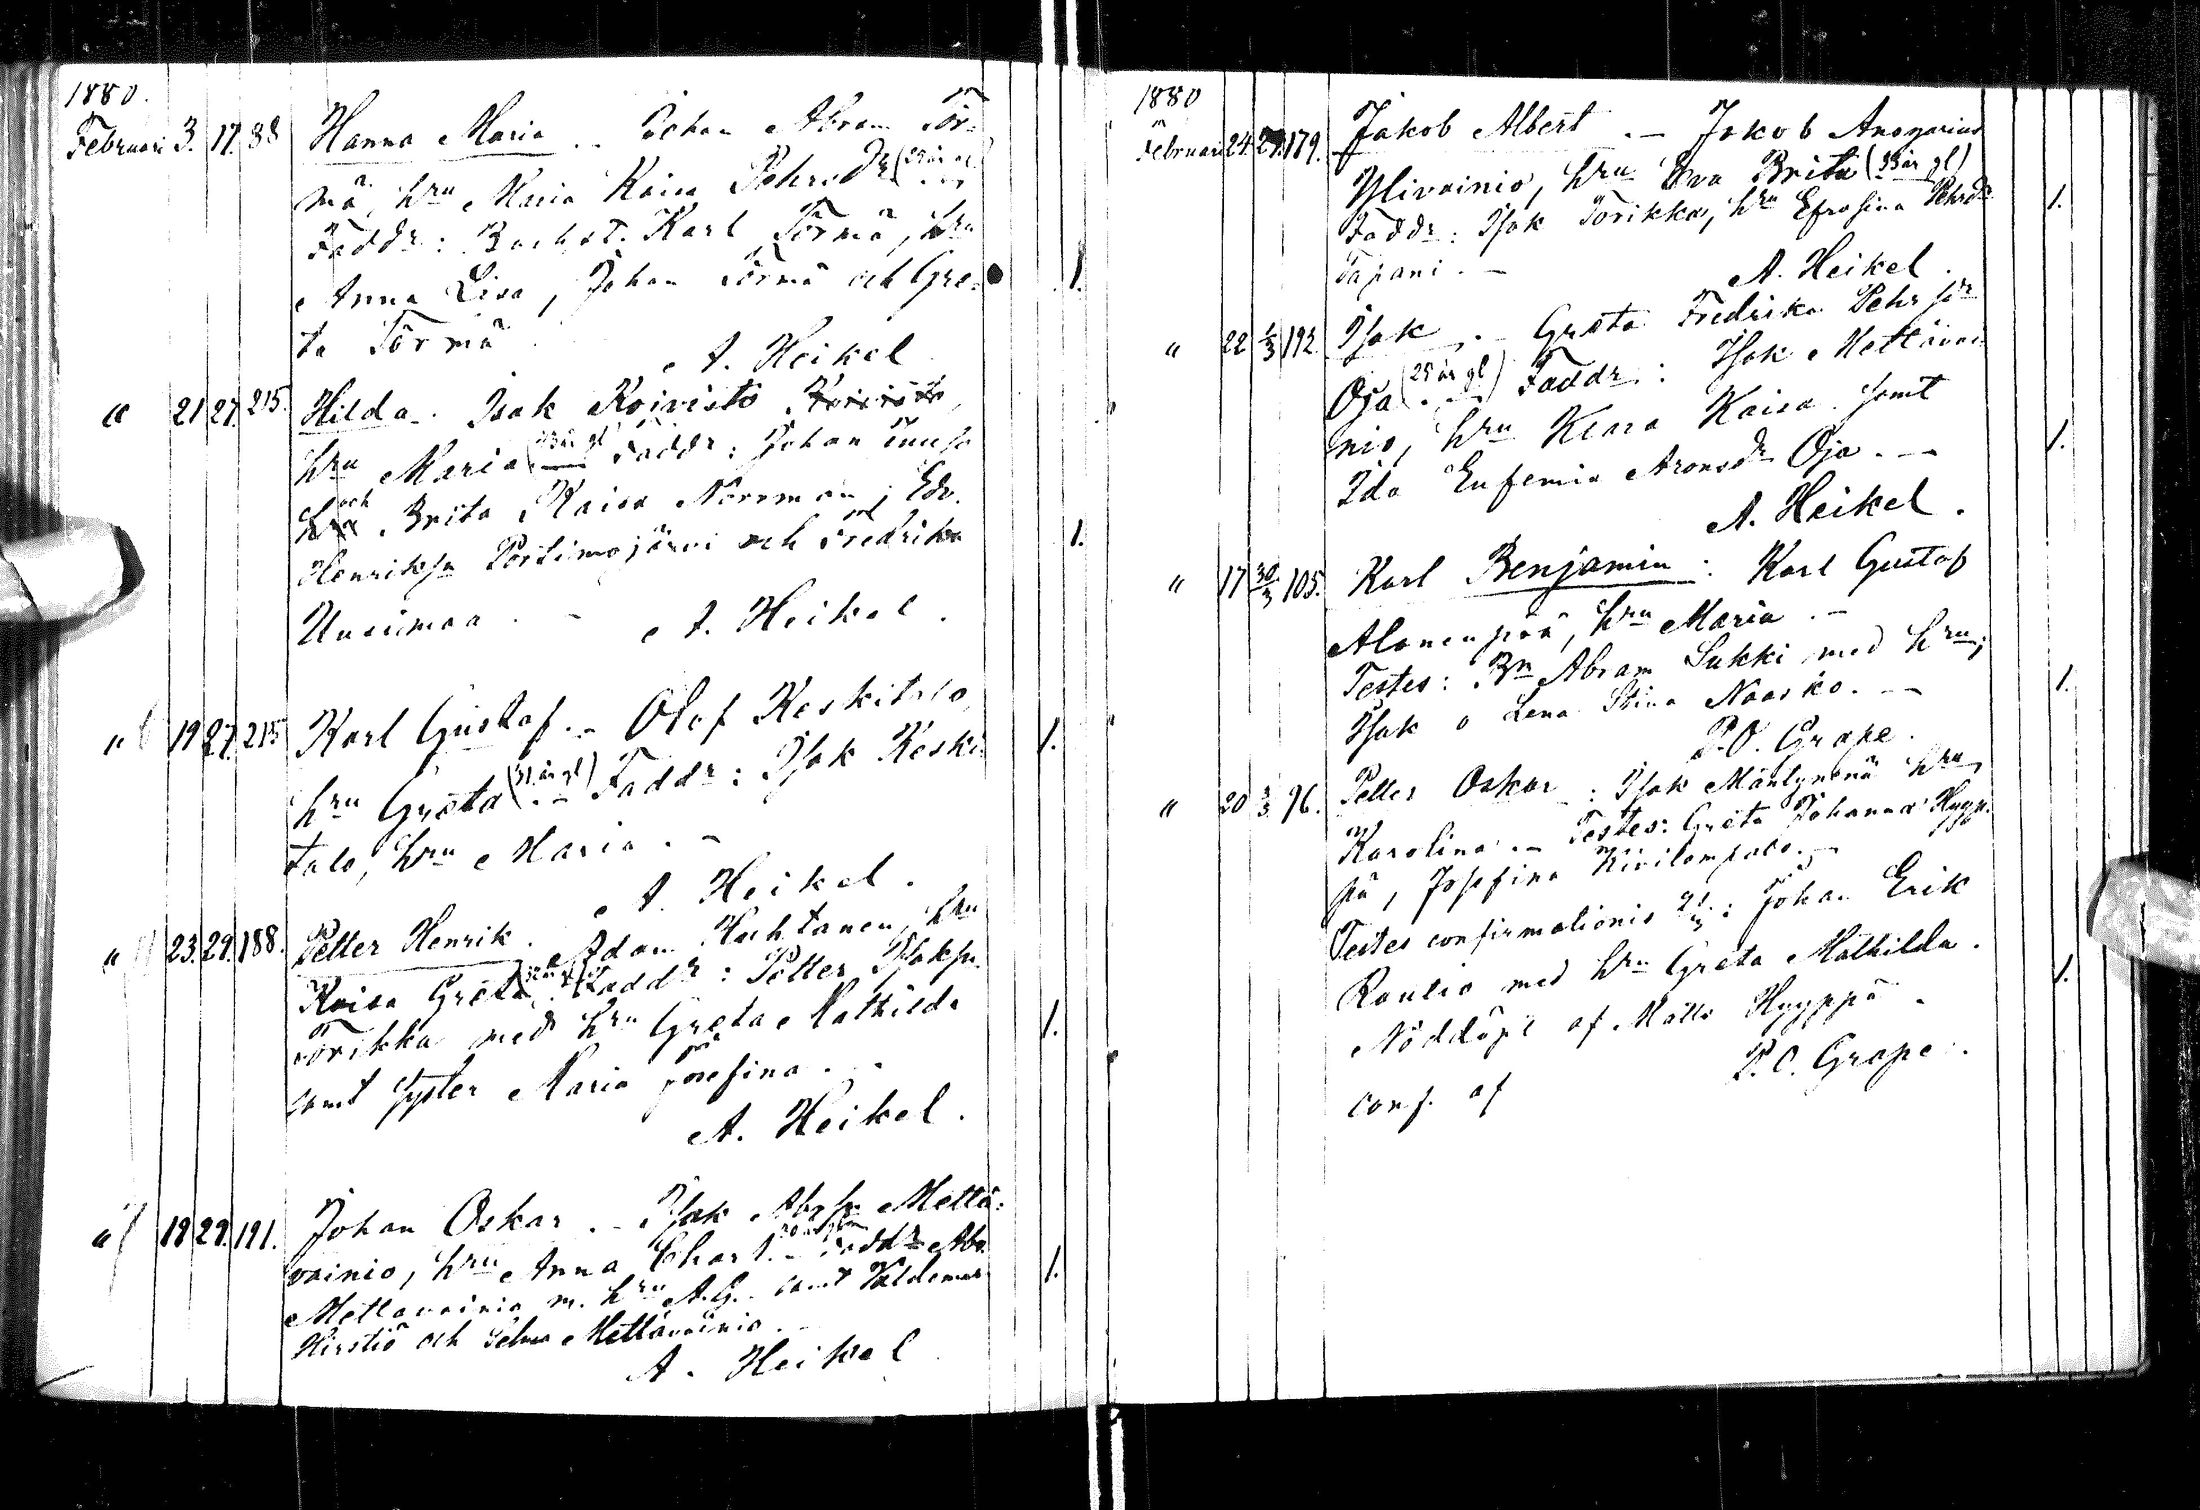 1880.
Februari 3. 17. 88 Hanna Maria .. Johan Abram Tör-
mä, hru Maria Kaisa Pehrsdr
Faddr: Backst. Karl Törmä, hru
Anna Lisa, Johan Törmä och Gre- 1.
ta Törmä
A. Heikel
" 21 27. 215. Hilda. Isak Koivisto Koivisto,
hru Maria (33 år gl) Faddr: Johan
och
hru Brita Kaisa Norrman; Edv.
Henrikss Portimojärvi och Fredrika 1.
Uusimaa. - A. Heikel.
" 19 27. 215 Karl Gustaf .- Olof Keskitalo, 1.
hru Greta (31 år gl) Faddr: Isak Keski-
talo, hru Maria . -
A. Heikel.
" 23. 29. 188. Petter Henrik. Adam Huhtanen, hru
Kaisa Greta Faddr: Petter Isakss.
Torikka med hru Greta Mathilda 1.
samt syster Maria Josefina . .
A. Heikel.
" 18 29. 191. Johan Oskar .- Isak Abrss Mettä-
vainio, hru Anna Charl. - Faddr Abr.
Mettavainio m. hru A.G. samt Valdemar 1.
Kirstiö och Selma Mettävainio. -
A. Heikel
1880
Februari 24. 29. 179. Jakob Albert .- Jakob Ansgarius
Ylivainio, hru Eva Brita (33 år gl)
Faddr: Isak Torikka, hru Efrosina Pehrsdr 1.
Tapani. -
A. Heikel.
" 22 1/3 192. Isak .- Greta Fredrika Pehrsdr
Oja (25 år gl) Faddr: Isak Mettävai-
nio, hru Klara Kaisa samt 1.
Ida Eufemia Aronsdr Oja. -
A. Heikel.
" 17 30/3 105. Karl Benjamin: Karl Gustaf
Alanenpää, hru Maria. -
Testes: Bn Abram Lukki med hru; 1.
Isak o Lena Stina Naasko. -
P.O. Grape.
" 20 3/3 96. Petter Oskar : Isak Mäntynenä hru
Karolina .- Testes: Greta Johanna Hyyp-
pä, Josefina Kivilompolo. -
Testes confirmationis : Johan Erik
Rautio med hru Greta Mathilda. 1.
Nöddöpt af Matts Hyyppä.
P.O. Grape.
conf. af